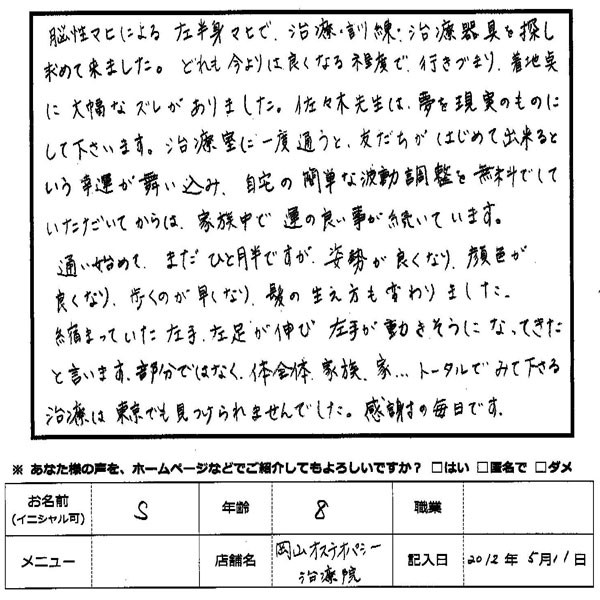 脳性マヒによる 左半身マヒで、治療・訓練・治療器具を探し
求めて来ました。どれも今よりは良くなる程度で、行きづまり、着地点
に大幅なズレがありました。佐々木先生は、夢を現実のものに
して下さいます。治療室に一度通うと、友だちがはじめて出来ると
いう幸運が舞い込み、自宅の簡単な波動調整を無料でして
いただいてからは、家族中で運の良い事が続いています。
通い始めて、まだひと月半ですが、姿勢が良くなり、顔色が
良くなり、歩くのが早くなり、髪の生え方も変わりました。
縮まっていた左手、左足が伸び 左手が動きそうになってきた
と言います。部分ではなく、体全体、家族、家…トータルでみて下さる
治療は東京でも見つけられませんでした。感謝の毎日です。
※ あなた様の声を、ホームページなどでご紹介してもよろしいですか? □はい □匿名で □ダメ
お名前 (イニシャル可) S 年齢 8 職業
メニュー 店舗名 岡山オステオパシー治療院 記入日 2012年 5月11日